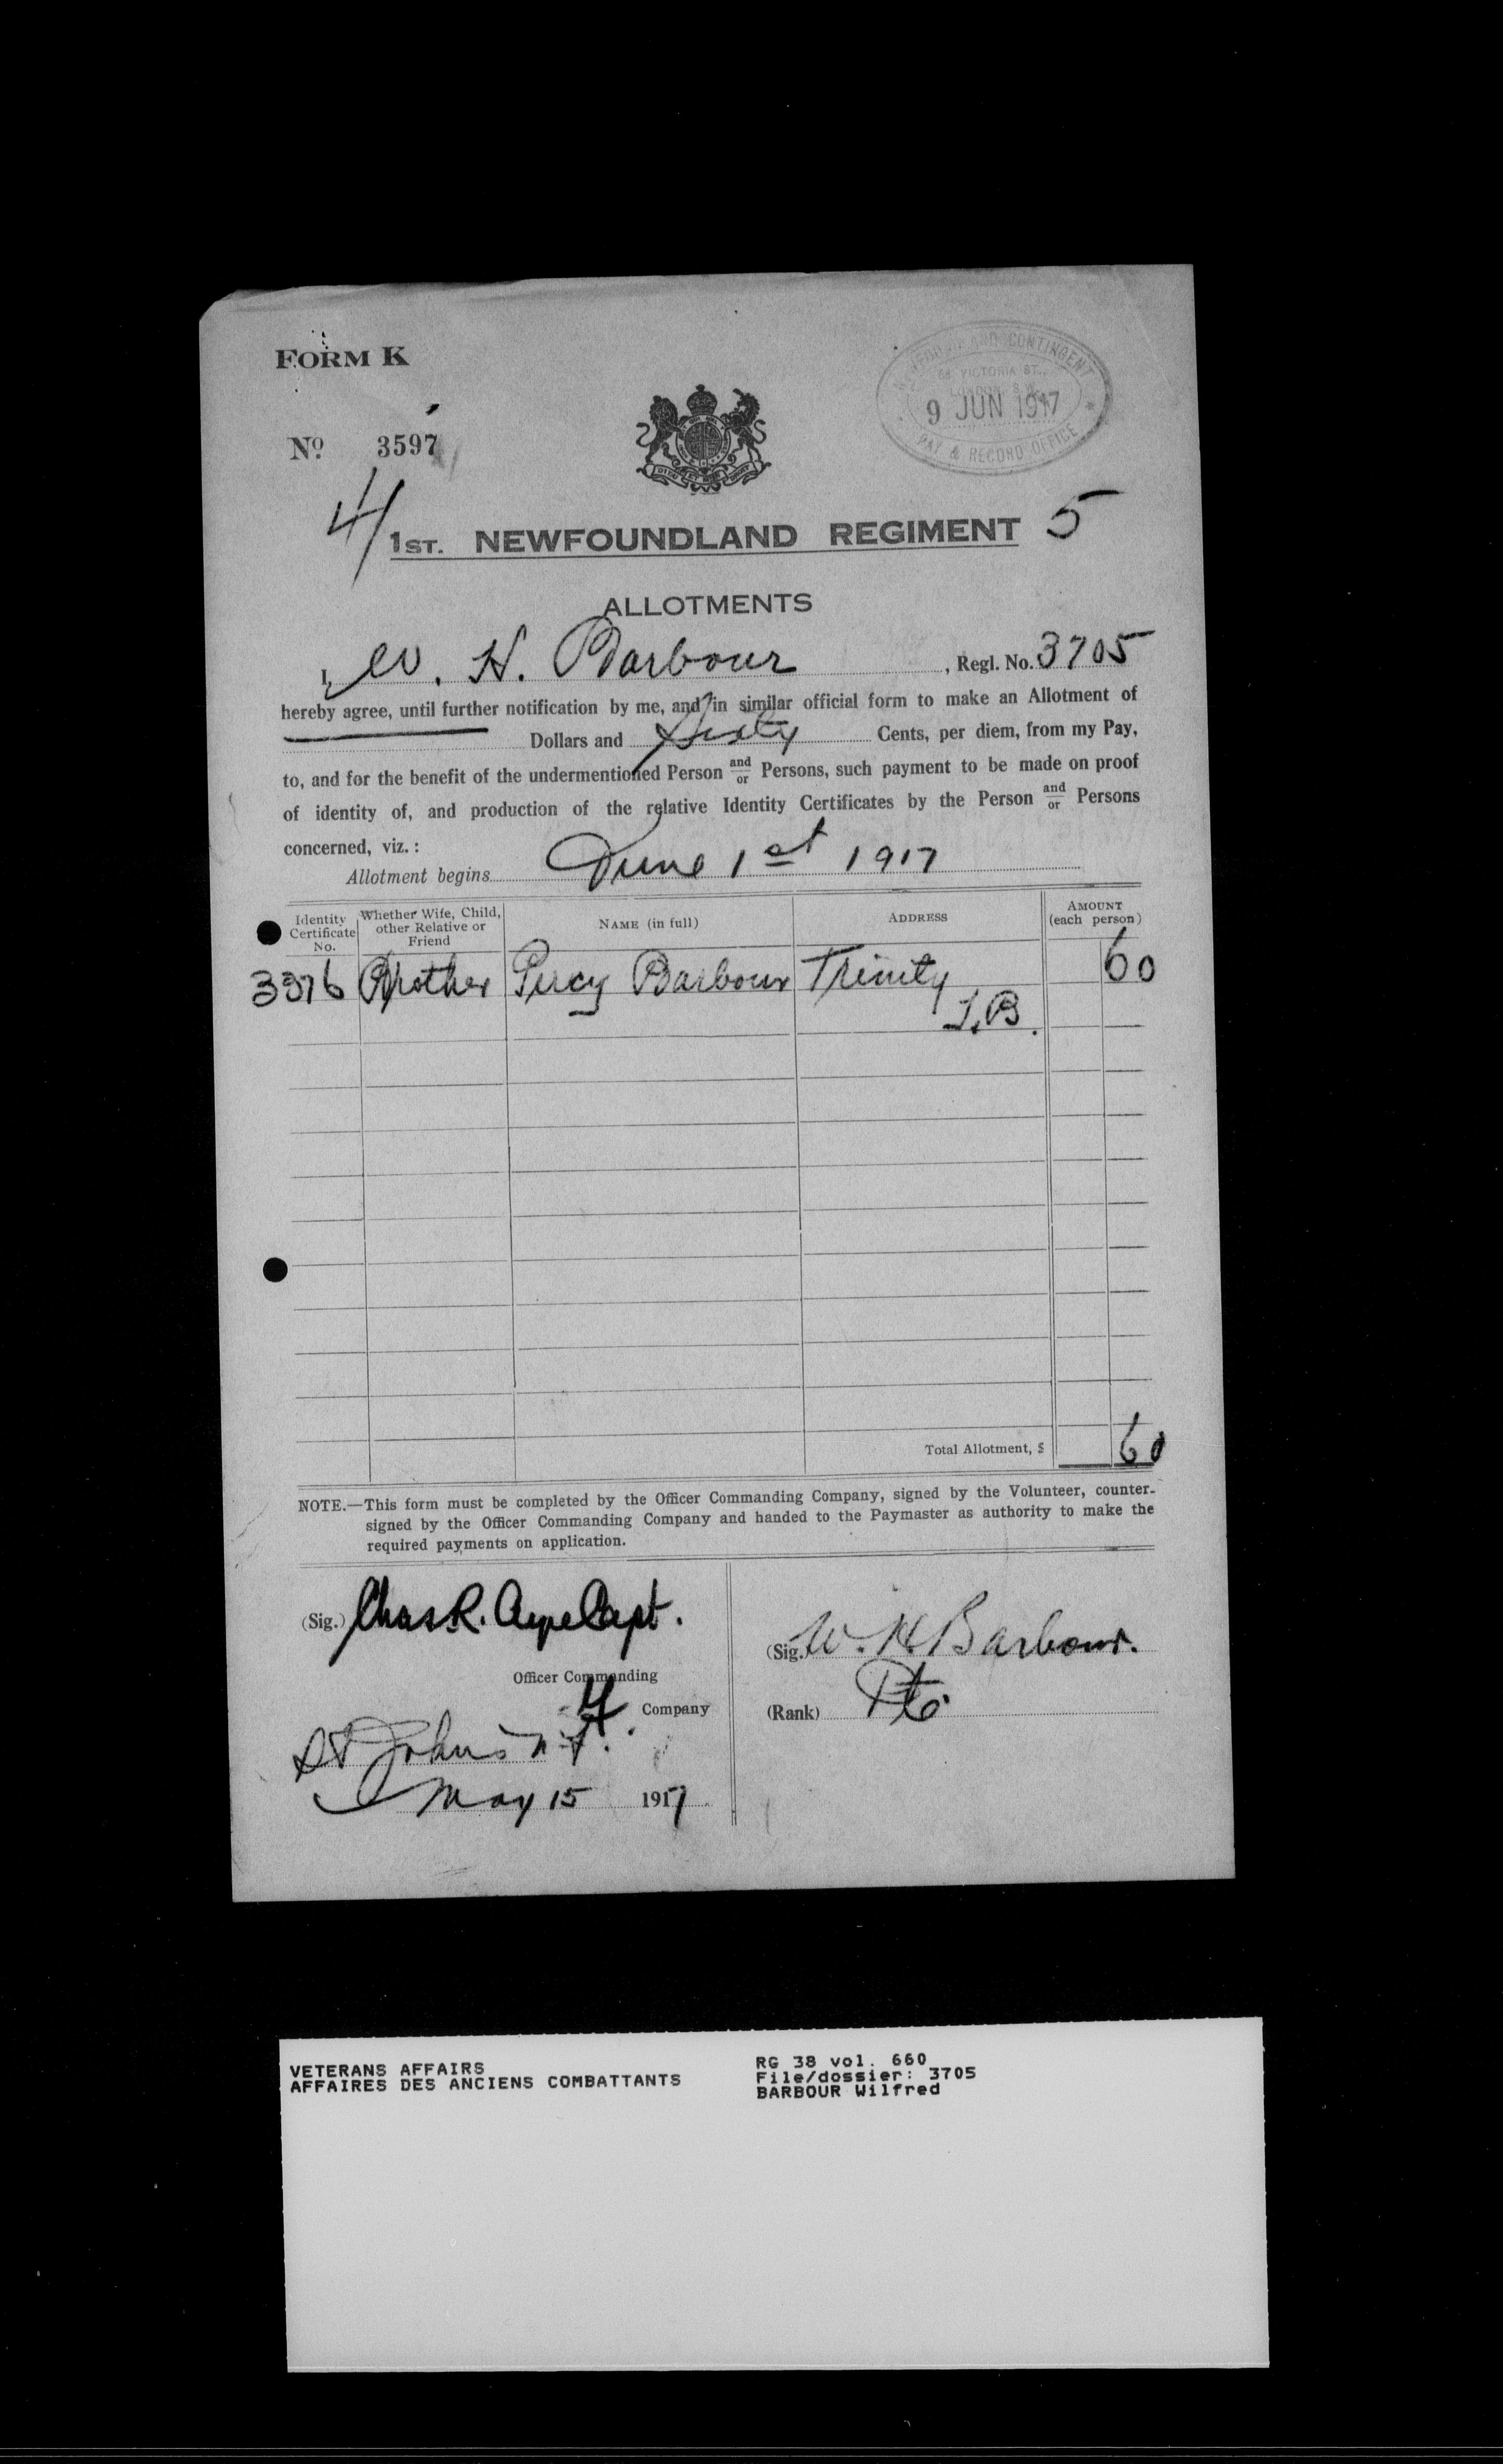 FORM K
NEWFOUNDLAND CONTINGENT
58 VICTORIA ST.,
LONDON, S.W.
9 JUN 1917
PAY & RECORD OFFICE
No. 3597
4/ 1ST. NEWFOUNDLAND REGIMENT 5
ALLOTMENTS
I, W. H. Barbour, Regl. No. 3705
hereby agree, until further notification by me, and in similar official form to make an Allotment of
Dollars and Sixty Cents, per diem, from my Pay,
to, and for the benefit of the undermentioned Person and/or Persons, such payment to be made on proof
of identity of, and production of the relative Identity Certificates by the Person and/or Persons
concerned, viz. :
Allotment begins June 1st 1917
Identity Certificate No. Whether Wife, Child, other Relative or Friend NAME (in full) ADDRESS AMOUNT (each person)
3376 Brother Percy Barbour Trinity 60
T.B.
Total Allotment, $ 60
NOTE.—This form must be completed by the Officer Commanding Company, signed by the Volunteer, counter-
signed by the Officer Commanding Company and handed to the Paymaster as authority to make the
required payments on application.
(Sig.) Chas. R. Ayre Capt.
Officer Commanding
H. Company
St Johns N.F.
May 15 1917
(Sig.) W. H. Barbour.
(Rank) Pte.
VETERANS AFFAIRS
AFFAIRES DES ANCIENS COMBATTANTS
RG 38 vol. 660
File/dossier: 3705
BARBOUR Wilfred